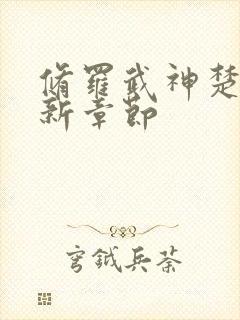 脩羅武神楚
新章節
穹鉞兵荼